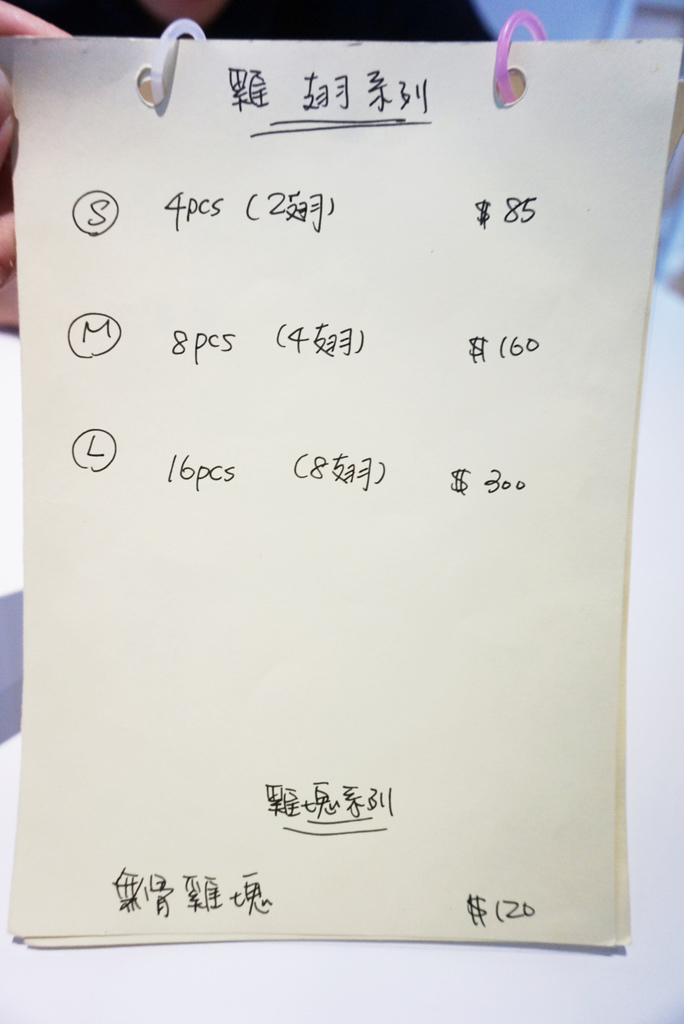 雞翅系列
S 4pcs (2翅) $85
M 8pcs (4翅) $160
L 16pcs (8翅) $300
雞塊系列
無骨雞塊 $120